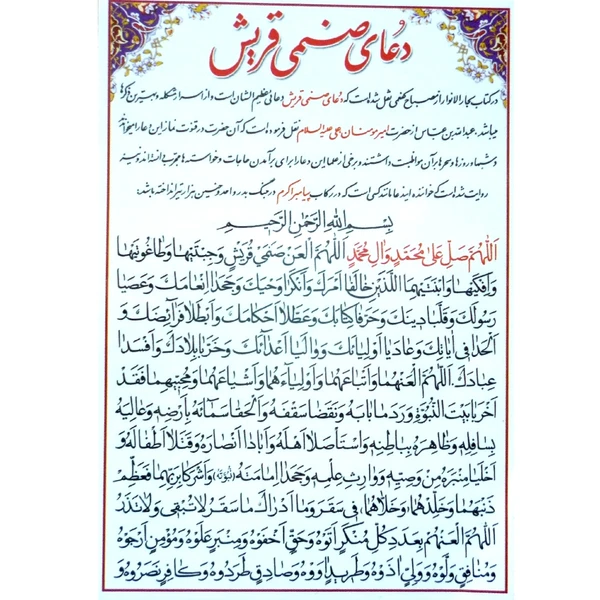 دعای صنمی قریش
در کتاب بحارالانوار از مصباح کفعمی نقل شده است که دعای صنمی قریش دعائی عظیم الشان است و از اسرار مشکله و بهترین ذکرها
میباشد. عبدالله بن عباس از حضرت امیر مومنان علی علیه السلام نقل فرموده است که آن حضرت در قنوت نماز این دعا را میخواندند
و شبها و روزها و سحرها بر آن مواظبت داشتند و برخی از علما این دعا را برای برآمدن حاجات و خواسته ها مجرب یافته اند و نیز
روایت شده است که خواننده این دعا مانند کسی است که در رکاب پیامبر اکرم در جنگ بدر و احد و حنین هزار تیر انداخته باشد:
بِسْمِ اللهِ الرَّحْمٰنِ الرَّحِیْمِ
اَللّٰهُمَّ صَلِّ عَلٰی مُحَمَّدٍ وَ اٰلِ مُحَمَّدٍ اَللّٰهُمَّ الْعَنْ صَنَمَیْ قُرَیْشٍ وَ جِبْتَیْهَا وَ طَاغُوتَیْهَا
وَ اِفْکَیْهَا وَ ابْنَتَیْهِمَا اللَّذَیْنِ خَالَفَا اَمْرَکَ وَ اَنْکَرَا وَحْیَکَ وَ جَحَدَا اِنْعَامَکَ وَ عَصَیَا
رَسُولَکَ وَ قَلَّبَا دِینَکَ وَ حَرَّفَا کِتَابَکَ وَ عَطَّلَا اَحْکَامَکَ وَ اَبْطَلَا فَرَائِضَکَ وَ
اَلْحَدَا فِی اٰیَاتِکَ وَ عَادَیَا اَوْلِیَائَکَ وَ وَالَیَا اَعْدَائَکَ وَ خَرَّبَا بِلَادَکَ وَ اَفْسَدَا
عِبَادَکَ. اَللّٰهُمَّ الْعَنْهُمَا وَ اَتْبَاعَهُمَا وَ اَوْلِیَاءَهُمَا وَ اَشْیَاعَهُمَا وَ مُحِبِّیْهِمَا فَقَدْ
اَخْرَبَا بَیْتَ النُّبُوَّةِ وَ رَدَمَا بَابَهُ وَ نَقَضَا سَقْفَهُ وَ اَلْحَقَا سَمَائَهُ بِاَرْضِهِ وَ عَالِیَهُ
بِسَافِلِهِ وَ ظَاهِرَهُ بِبَاطِنِهِ وَ اسْتَأْصَلَا اَهْلَهُ وَ اَبَادَا اَنْصَارَهُ وَ قَتَلَا اَطْفَالَهُ وَ
اَخْلَیَا مِنْبَرَهُ مِنْ وَصِیِّهِ وَ وَارِثِ عِلْمِهِ وَ جَحَدَا اِمَامَتَهُ (نُبُوَّتَهُ) وَ اَشْرَکَا بِرَبِّهِمَا فَعَظِّمْ
ذَنْبَهُمَا وَ خَلِّدْهُمَا فِی سَقَرَ وَ مَا اَدْرٰاکَ مَا سَقَرُ لَا تُبْقِی وَ لَا تَذَرُ
اَللّٰهُمَّ الْعَنْهُمْ بِعَدَدِ کُلِّ مُنْکَرٍ اَتَوْهُ وَ حَقٍّ اَخْفَوْهُ وَ مِنْبَرٍ عَلَوْهُ وَ مُؤْمِنٍ اَرْجَوْهُ
وَ مُنَافِقٍ وَلَّوْهُ وَ وَلِیٍّ اٰذَوْهُ وَ طَرِیدٍ اٰوَوْهُ وَ صَادِقٍ طَرَدُوهُ وَ کَافِرٍ نَصَرُوهُ وَ